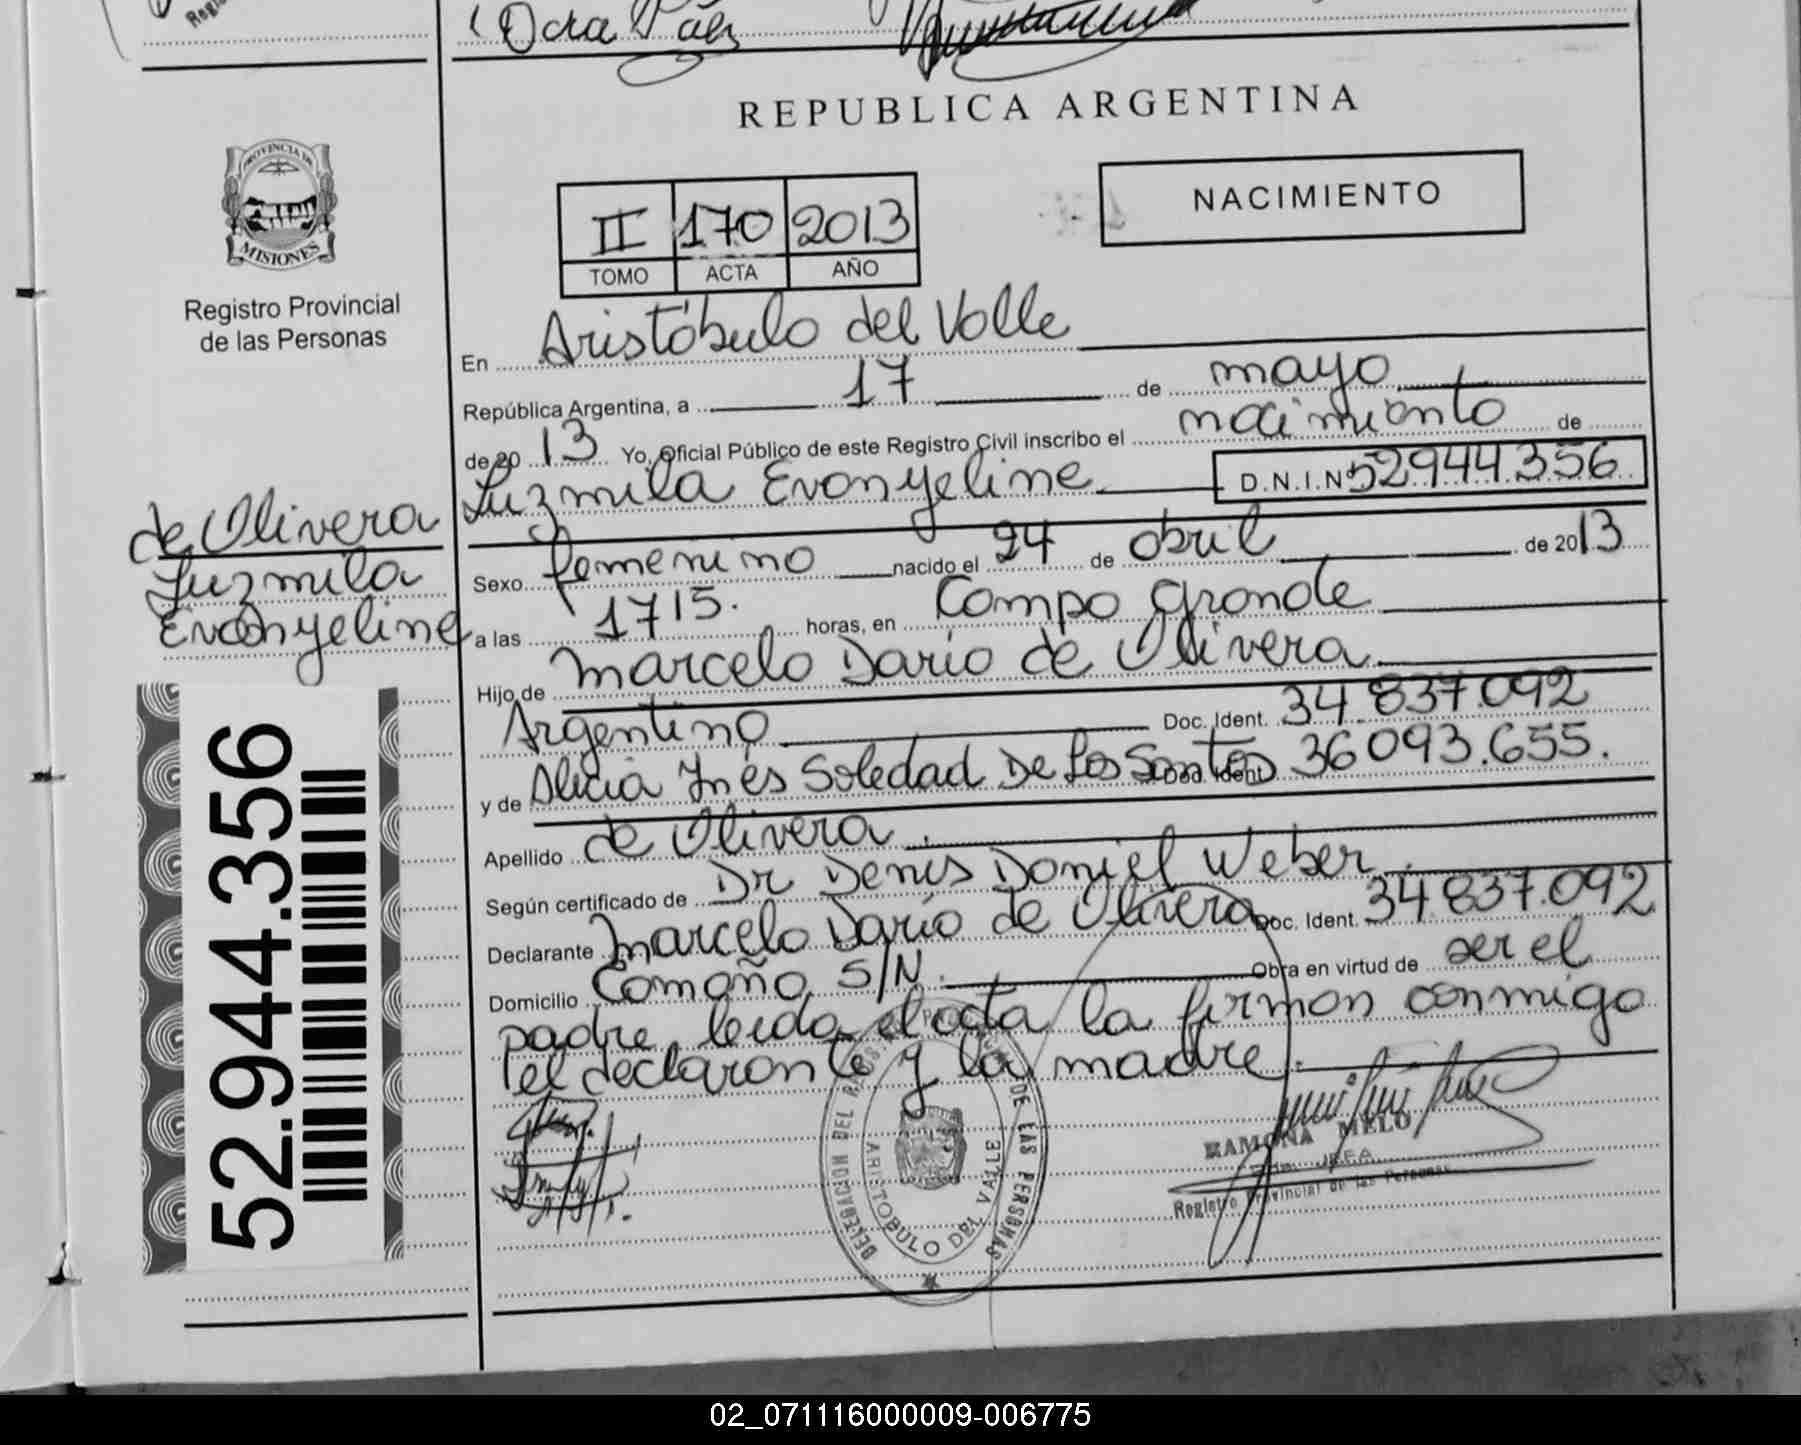 Ocra Páez
REPUBLICA ARGENTINA
PROVINCIA DE
MISIONES
Registro Provincial
de las Personas
II 170 2013
TOMO ACTA AÑO
NACIMIENTO
En Aristóbulo del Valle
República Argentina, a 17 de mayo
de 20 13 Yo, Oficial Público de este Registro Civil inscribo el nacimiento de
Luzmila Evangeline D.N.I.Nº 52944.356
de Olivera
Luzmila
Evangeline
Sexo femenino nacido el 24 de abril de 2013
a las 1715. horas, en Campo Grande
Hijo de Marcelo Dario de Olivera
Argentino Doc. Ident. 34 837.092
y de Alicia Inés Soledad De Los Santos Doc. Ident. 36093.655.
Apellido de Olivera.
Según certificado de Dr Denis Daniel Weber.
Declarante Marcelo Darío de Olivera Doc. Ident. 34 837.092
Domicilio Comaño S/N. Obra en virtud de ser el
padre leida el acta la firman conmigo
el declarante y la madre.
52.944.356
DELEGACION DEL DE LAS PERSONAS
ARISTOBULO DEL VALLE
RAMONA MELO
JEFA
Registro Provincial de las Personas
02_071116000009-006775